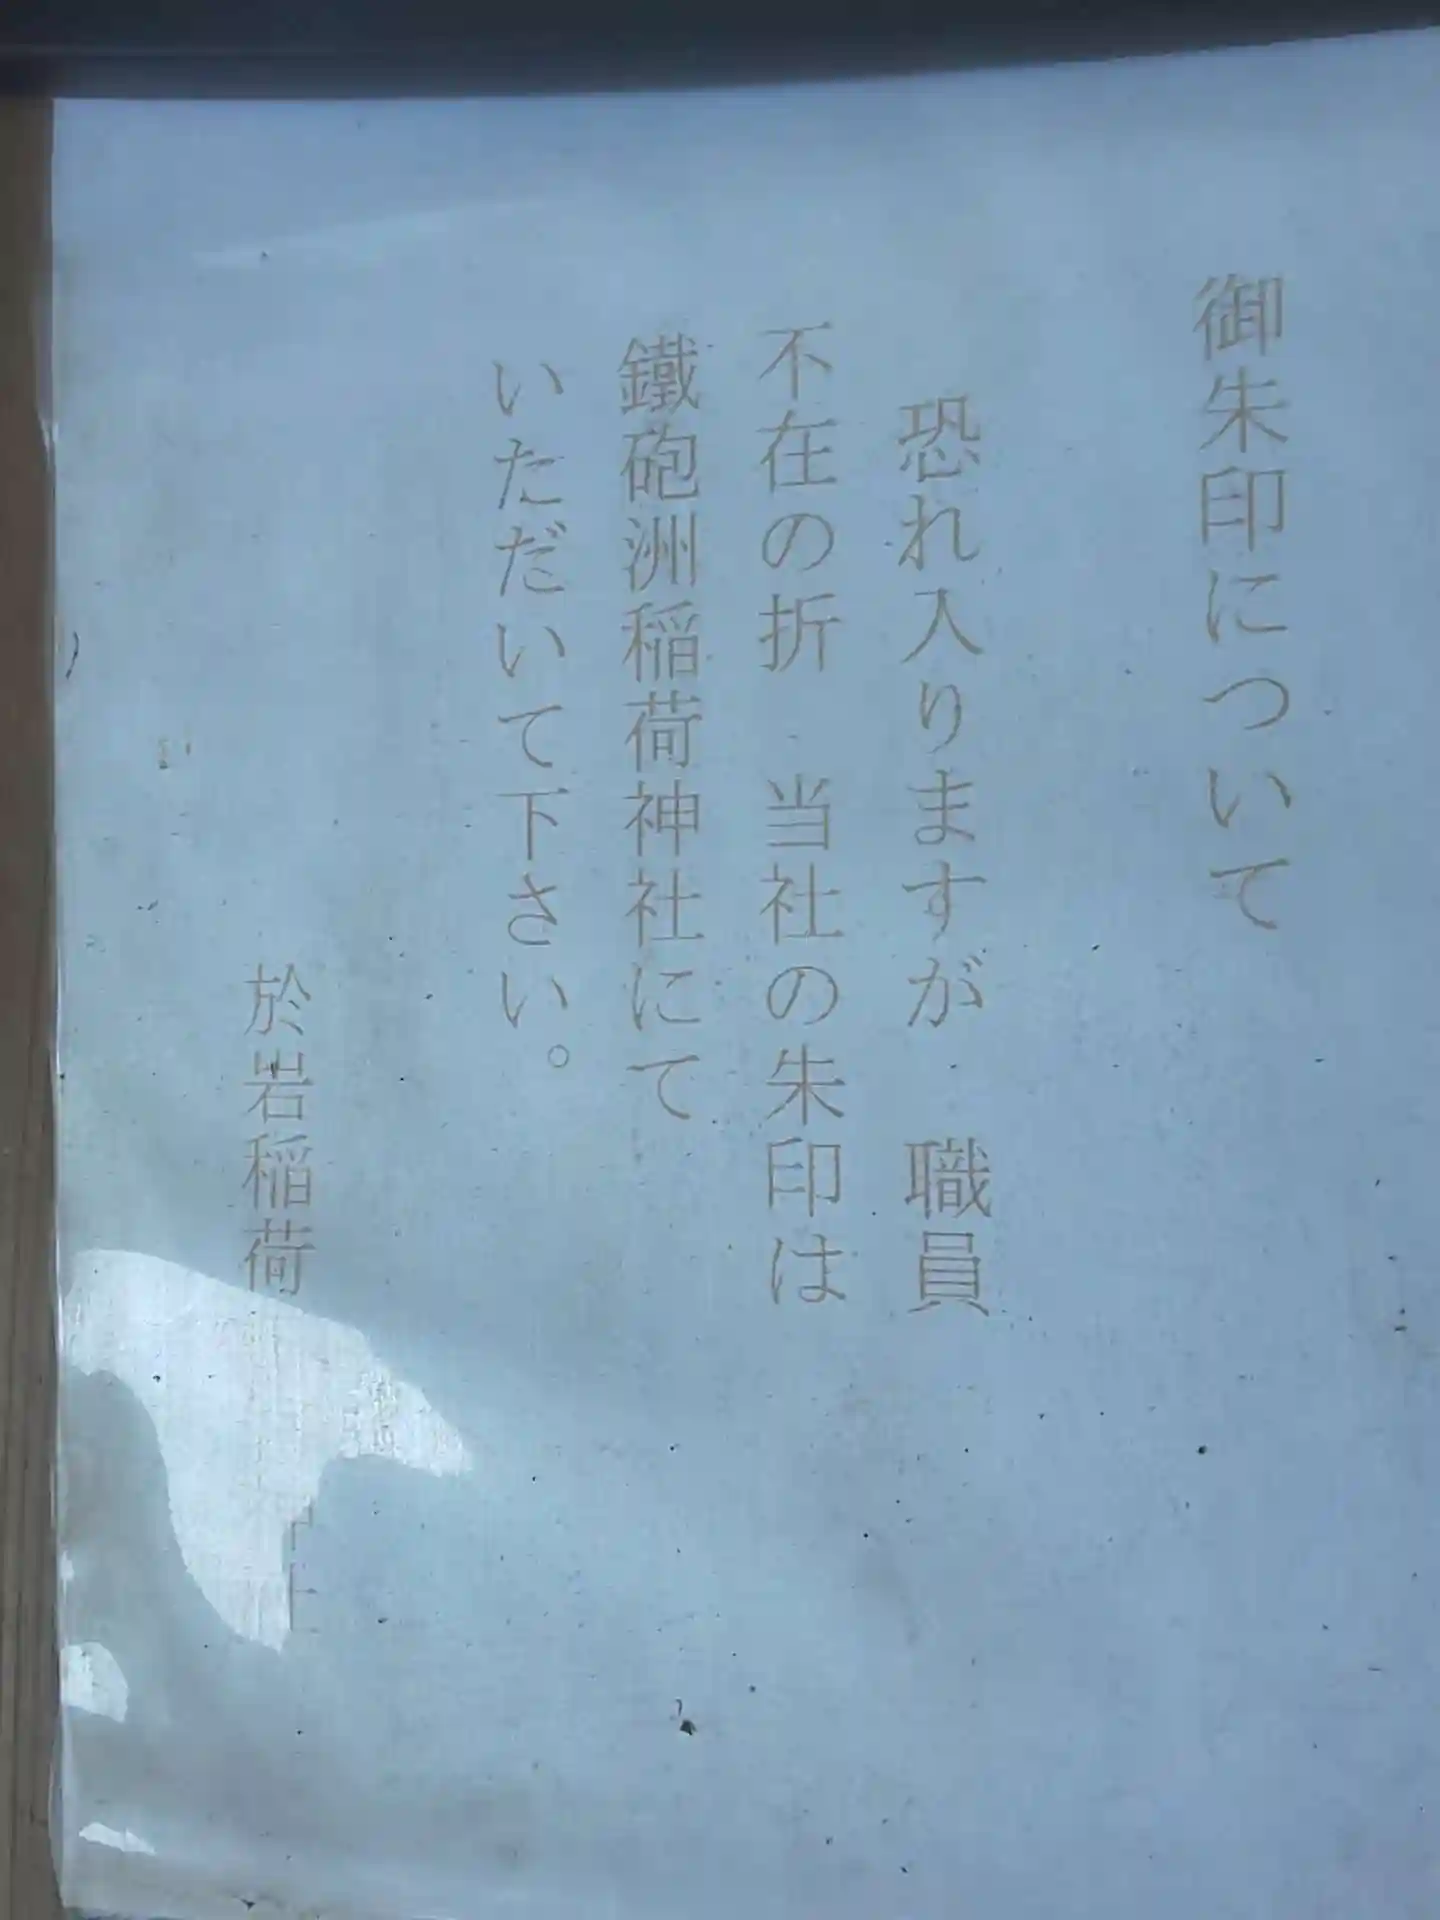 御朱印について
恐れ入りますが 職員
不在の折 当社の朱印は
鐵砲洲稲荷神社にて
いただいて下さい。
於岩稲荷